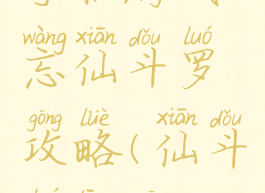 wàng xiān dǒu luó
忘仙斗罗
gōng lüè xiān dǒu
攻略(仙斗